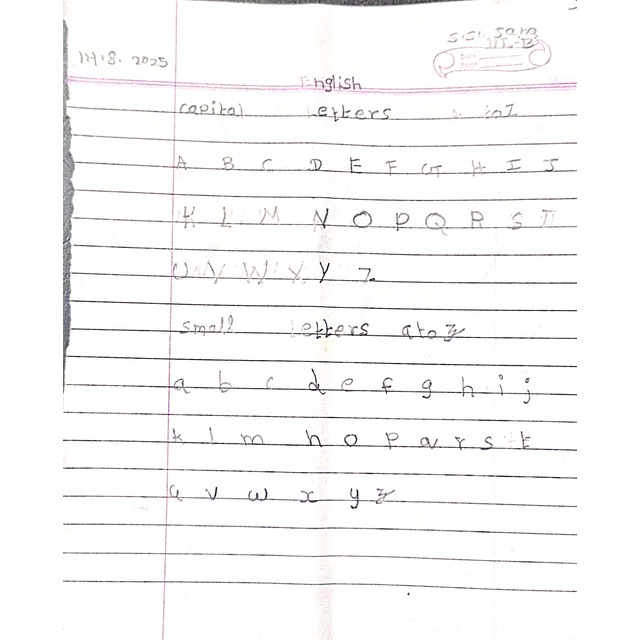 14.8.2025
English
capital letters A to Z
A B C D E F G H I J
K L M N O P Q R S T
U V W X Y Z
small letters a to z
a b c d e f g h i j
k l m n o p q r s t
u v w x y z